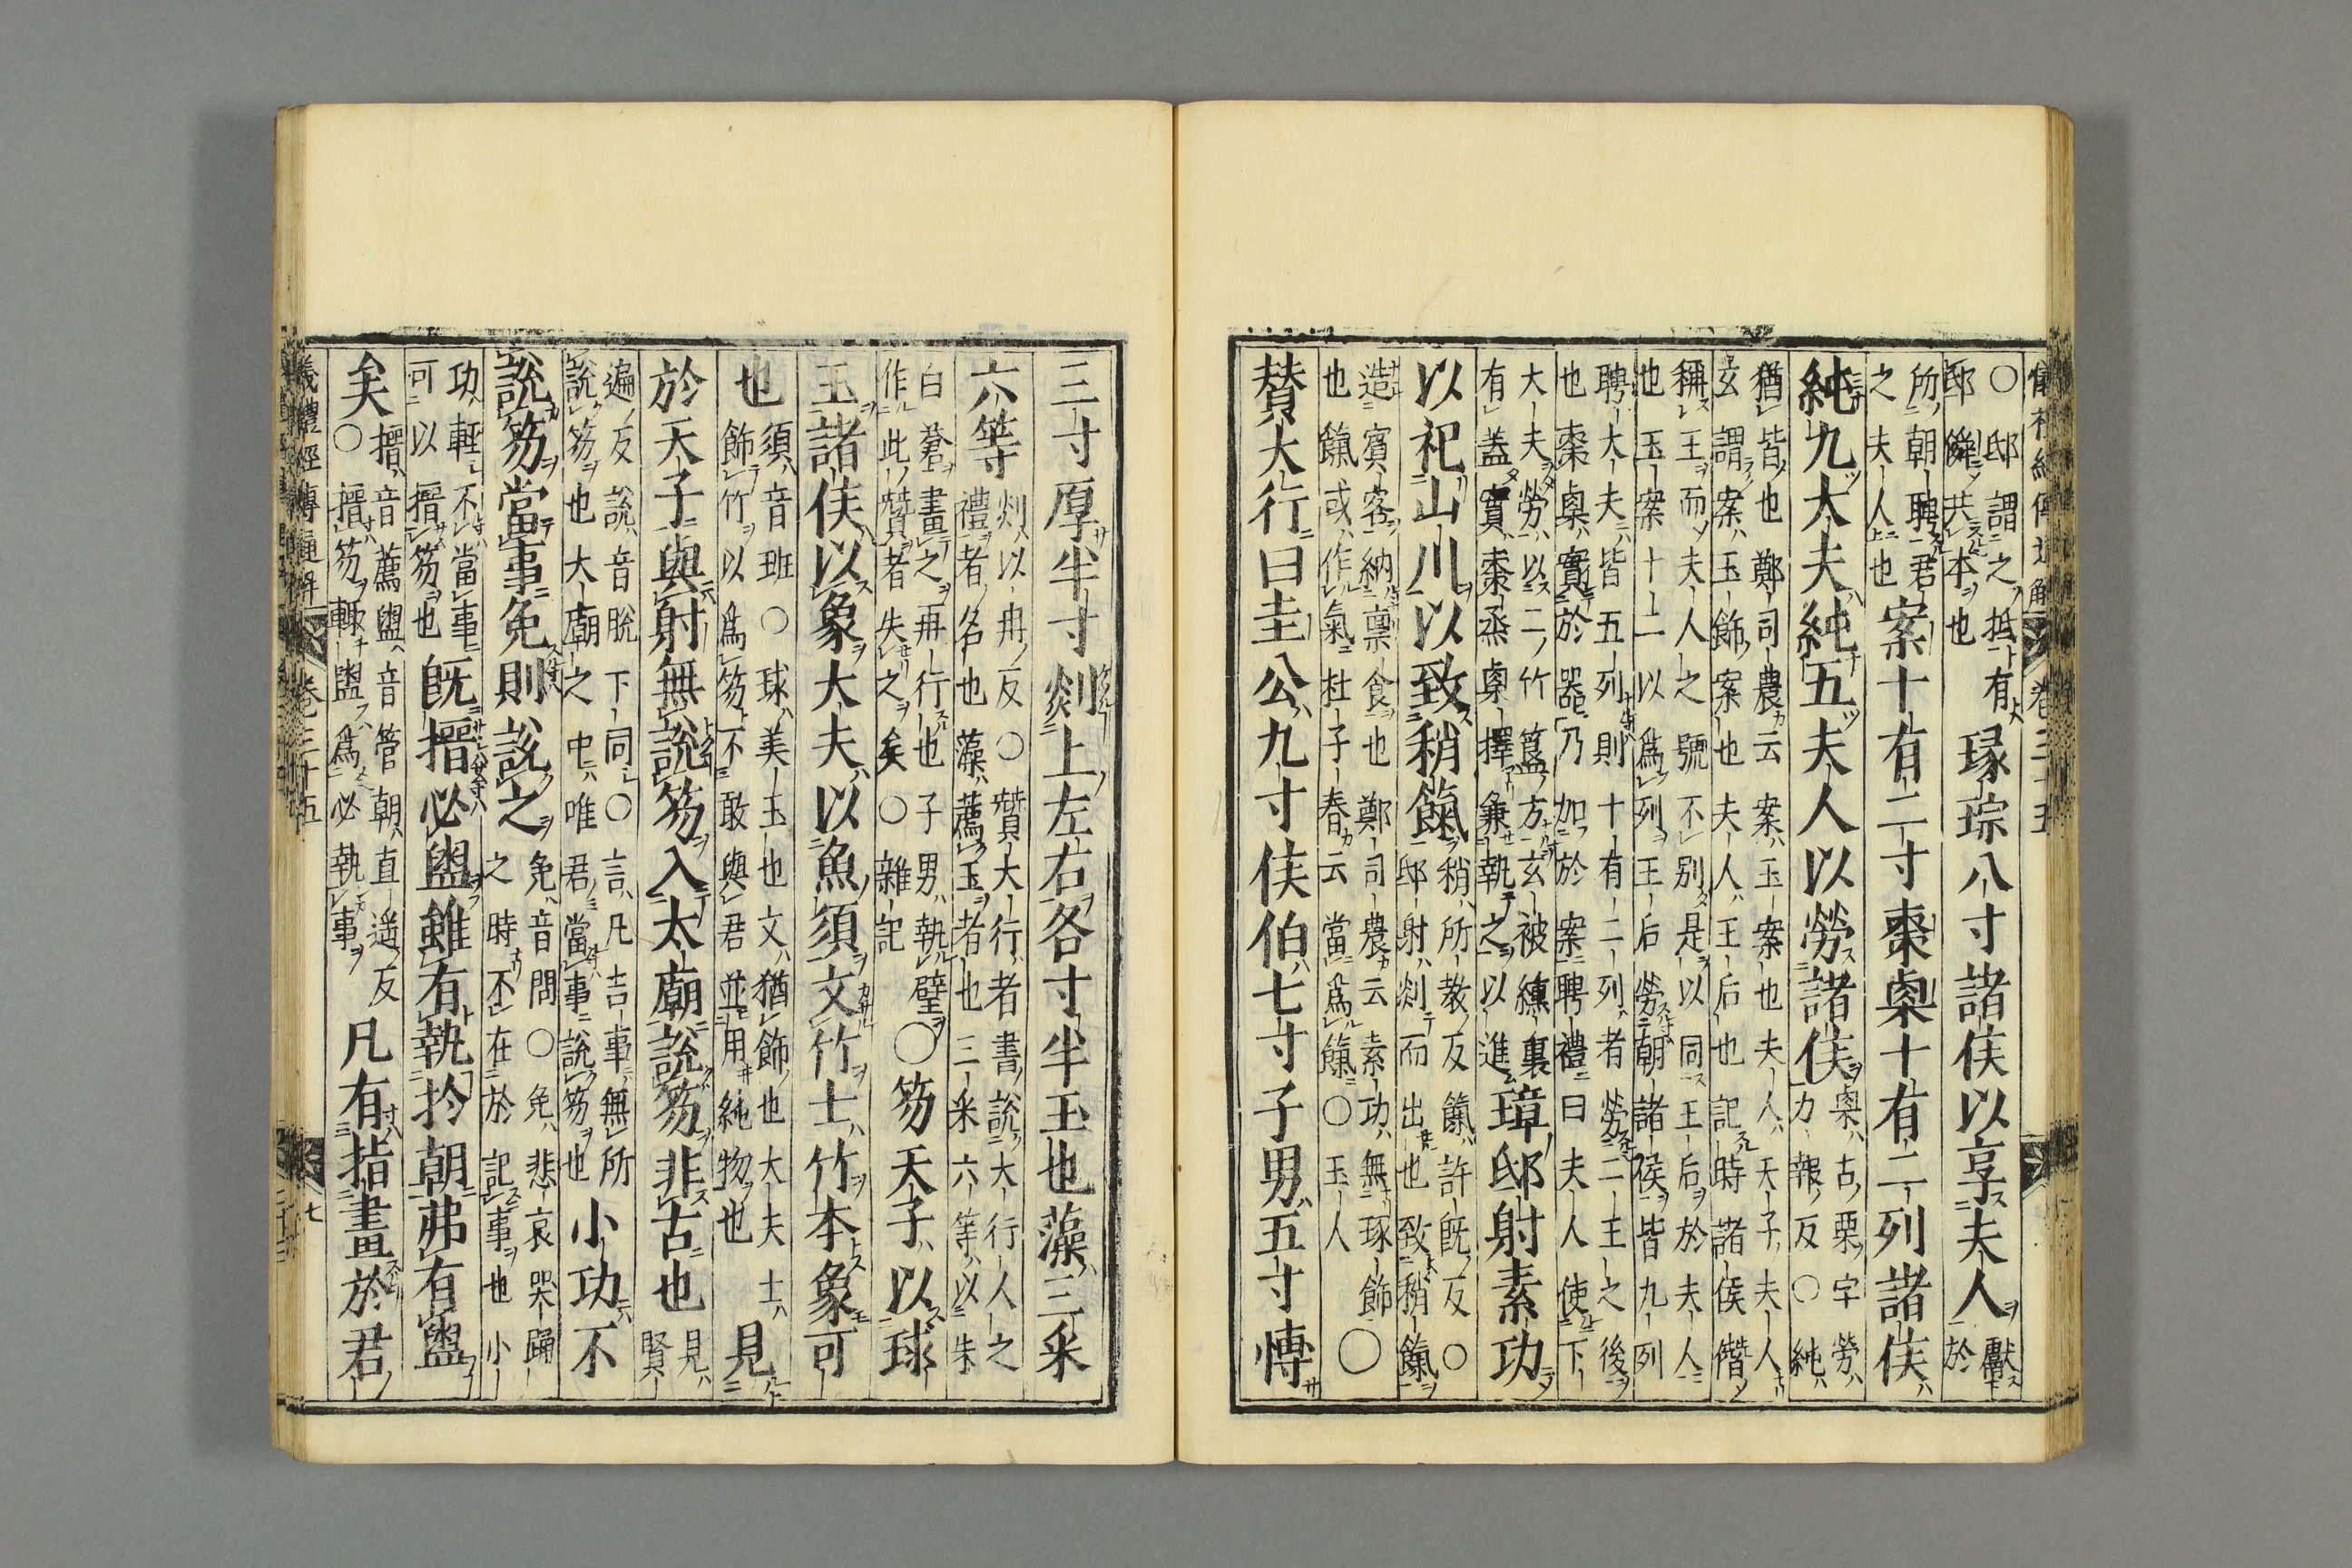 〇邸謂之抵有邸僢共本也瑑琮八寸諸侯以享夫人獻於
所朝聘君之夫人也案十有二寸棗㮚十有二列諸侯
純九大夫純五夫人以勞諸侯㮚古栗字勞力報反〇純
猶皆也鄭司農云案玉案也夫人天子夫人玄謂案玉飾案也夫人王后也記時諸侯僭
稱王而夫人之號不别是以同王后於夫人也玉案十二以爲列王后勞朝諸侯皆九列
聘大夫皆五列則十有二列者勞二王之後也棗㮚實於器乃加於案聘禮曰夫人使下
大夫勞以二竹簠方玄被纁裏有蓋實棗烝㮚擇兼執之以進璋邸射素功
以祀山川以致稍餼稍所教反餼許旣反〇邸射剡而出也致稍餼
造賓客納禀食也鄭司農云素功無琢飾也餼或作氣杜子春云當爲餼〇玉人〇
賛大行曰圭公九寸侯伯七寸子男五寸愽
三寸厚半寸剡上左右各寸半玉也藻三采
六等剡以冉反〇賛大行者書說大行人之禮者名也藻薦玉者也三采六等以朱
白蒼畫之再行也子男執璧作此賛者失之矣〇雜記〇笏天子以球
玉諸侯以象大夫以魚須文竹士竹本象可
也須音班〇球美玉也文猶飾也大夫士飾竹以爲笏不敢與君並用純物也見
於天子與射無說笏入太廟說笏非古也見賢
遍反說音脫下同〇言凡吉事無所說笏也大廟之中唯君當事說笏也小功不
說笏當事免則說之免音問〇免悲哀哭踊之時不在於記事也小
功輕不當事可以搢笏也旣搢必盥雖有執於朝弗有盥
矣搢音薦盥音管朝直遥反〇搢笏輒盥爲必執事凡有指畫於君
儀禮經傳通解 卷三十五 七